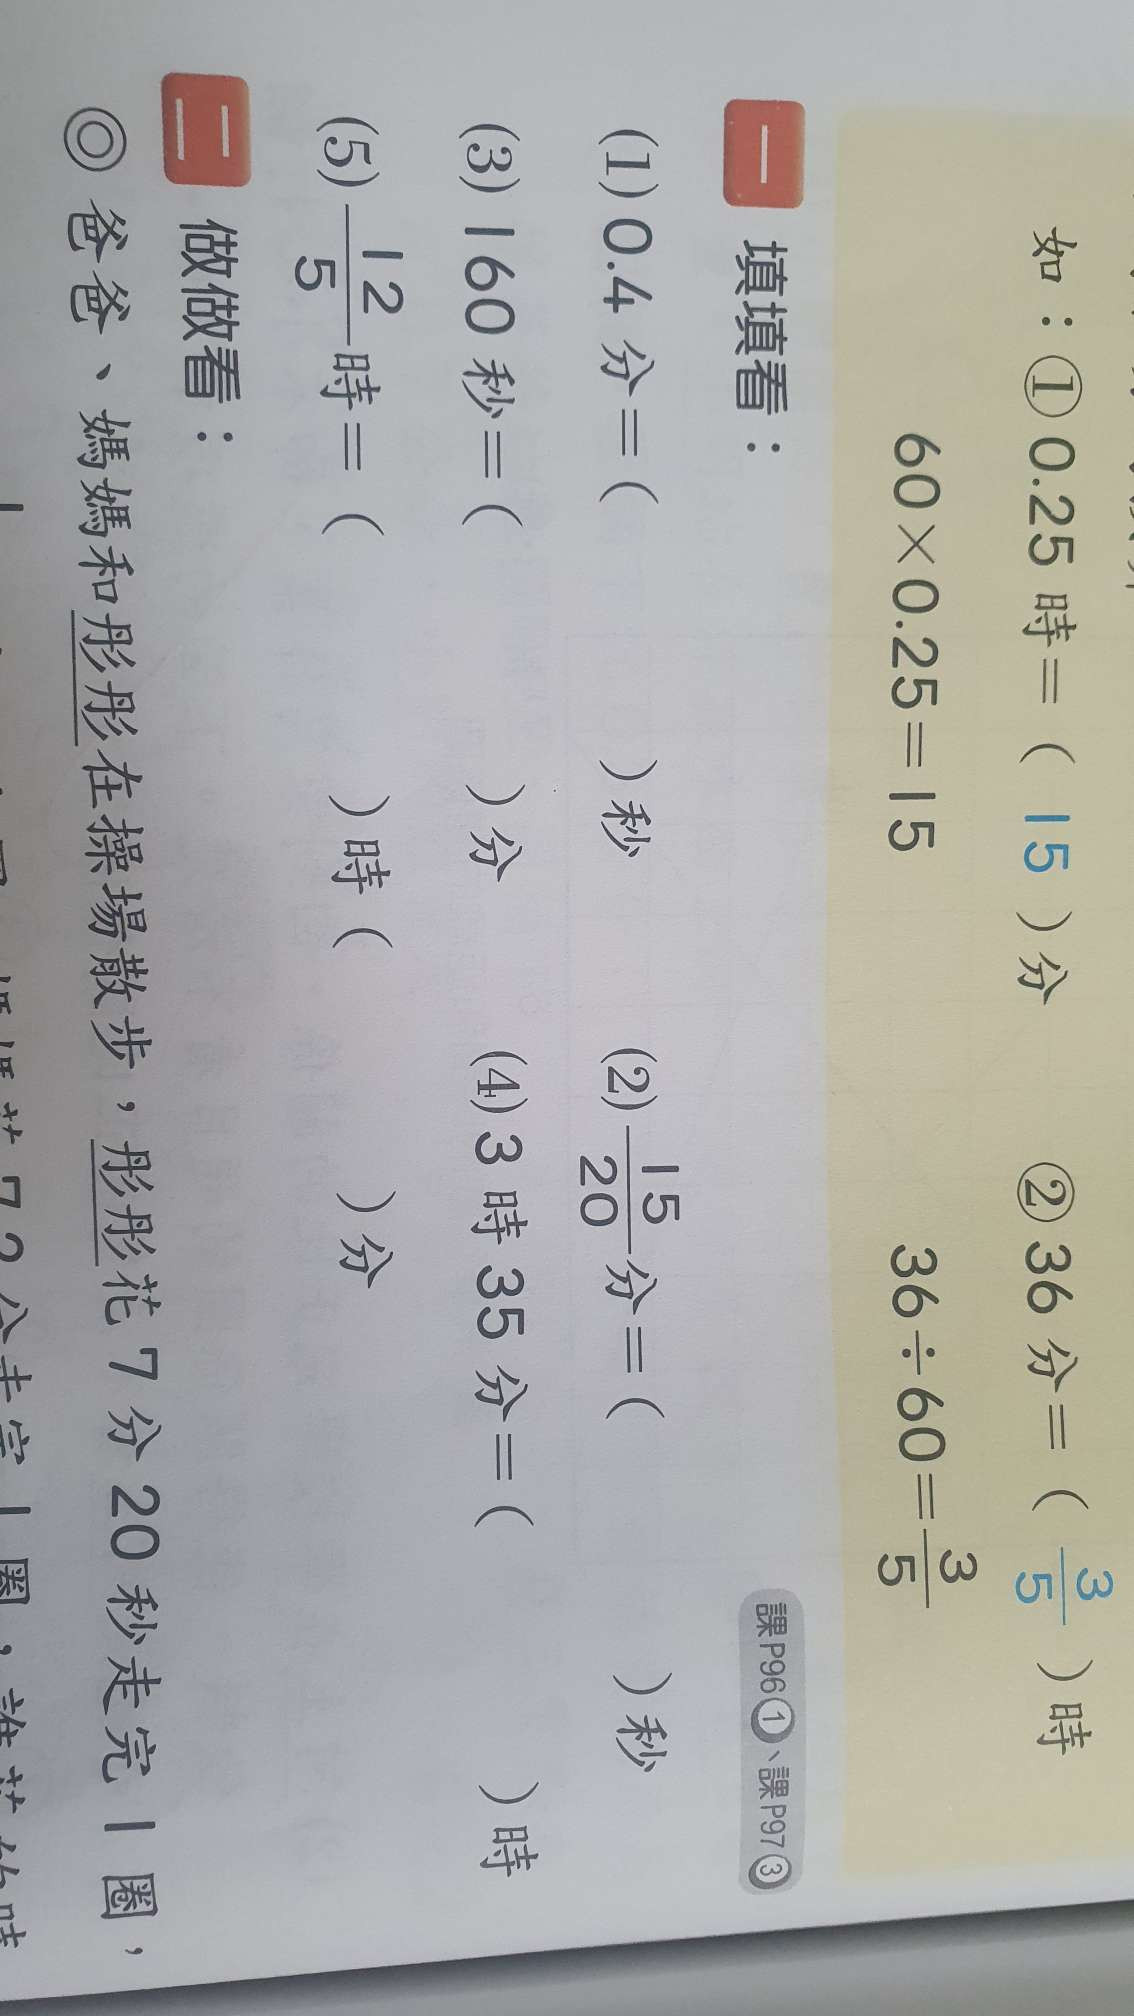 如：①0.25時=( 15 )分 ②36分=( 3/5 )時
60×0.25=15 36÷60=3/5
一 填填看： 課P96①、課P97③
(1)0.4分=( )秒 (2)15/20分=( )秒
(3)160秒=( )分 (4)3時35分=( )時
(5)12/5時=( )時( )分
二 做做看：
◎爸爸、媽媽和彤彤在操場散步，彤彤花7分20秒走完1圈，